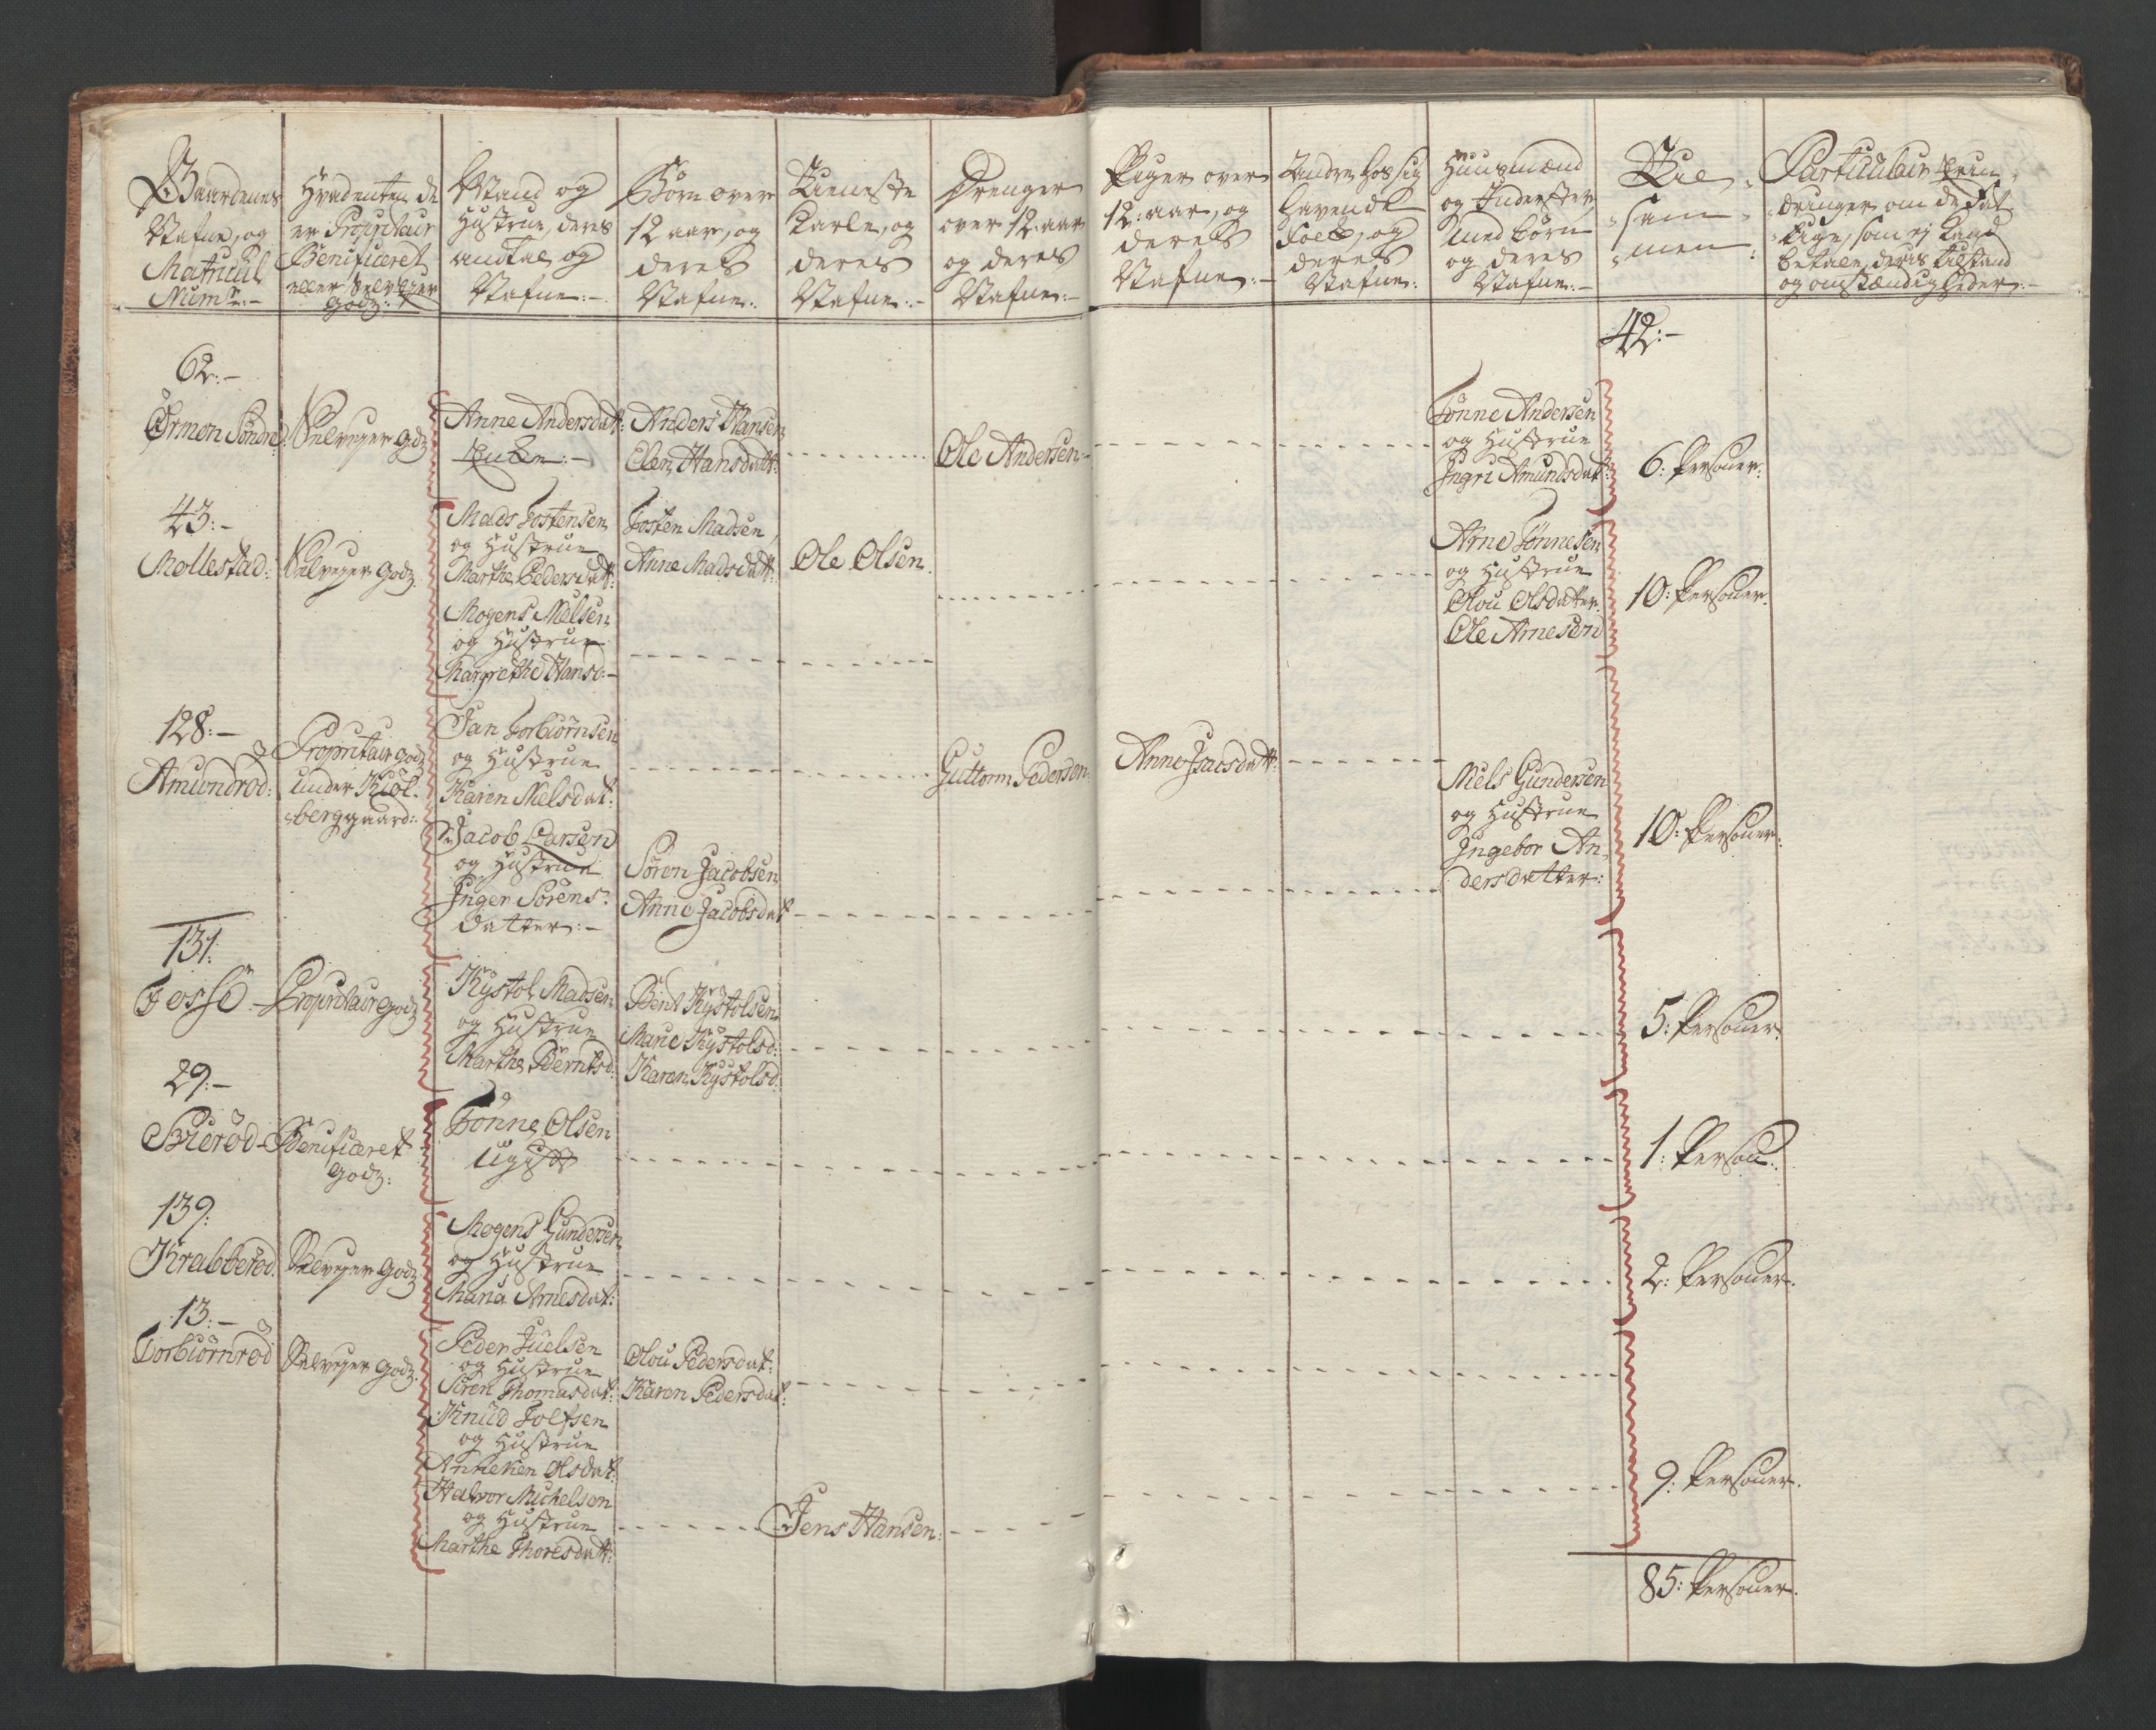 Gaardenes
Nafne, og
Matricul
Num:r:-
Hvadenten de
er Propritair
Benificeret
eller Selveyer
godz:
Mand og
Hustrue, deres
andtal og
Nafne:-
Børn over
12 aar, og
deres
Nafne:
Tieneste
Karle, og
deres
Nafne:-
Drenger
over 12 aar
og deres
Nafne:-
Piger over
12: aar, og
deres
Nafne:-
Andre hos sig
havende
Folck, og
deres
Nafne:
Huusmænd
og Inderster
med børn
og deres
Nafne:-
Til
sam
men
Particulair Erin
dringer om de Fat
tige, som ej kand
betale, deris tilstand
og omstændigheder:-
42:-
62:-
Ørmon Søndre:
Selveyer Godz
Anne Andersdatt:
Enke:-
Anders Hansen
Elen Hansdatt:
Ole Andersen
Tønne Andersen
og Hustrue
Ingri Amundsdat:
6: Persouer:
43:-
Mollestad:
Selveyer Godz
Mads Tostensen
og Hustrue
Marthe Pedersdatt:
Mogens Nielsen
og Hustrue
Margrethe Hansd:-
Tosten Madsen
Anne Madsdatt:
Ole Olsen
Arne Tønnesen
og Hustrue
Olou Olsdater
Ole Arnesen
10: Persouer.
128:-
Amundrød:
Propritair Godz
under Kiøl-
berggaard:
Jan Torbiørnsen
og Hustrue
Karen Nielsdat:
Jacob Larsen
og Hustrue
Inger Sørens
datter:-
Søren Jacobsen
Anne Jacobsdat
Guttorm Pedersen
Anne Isacsdatt:
Niels Gundersen
og Hustrue
Ingebor An
dersdatter:
10: Persouer.
131:
Fosse
Propritair godz
Kystol Madsen
og Hustrue
Marthe Berntsd:
Bent Kystolsen
Marie Kystolsd:
Karen Kystolsd:
5: Persouer.
29:-
Bierød
Benificeret
Godz:
Tønne Olsen
Ugift
1: Persou.
139:
Krabberød
Selveyer Godz
Mogens Gundersen
og Hustrue
Maria Arnesdat:
2: Persouer.
13:-
Torbiørnrød
Selveyer Godz
Peder Juelsen
og Hustrue
Siren Thomasdat:
Knud Tolfsen
og Hustrue
Anneken Olsdat:
Halvor Michelsen
og Hustrue
Marthe Thoresdatt:
Olou Pedersdat:
Karen Pedersdat:
Jens Hansen:
9: Persouer.
85: Persouer.